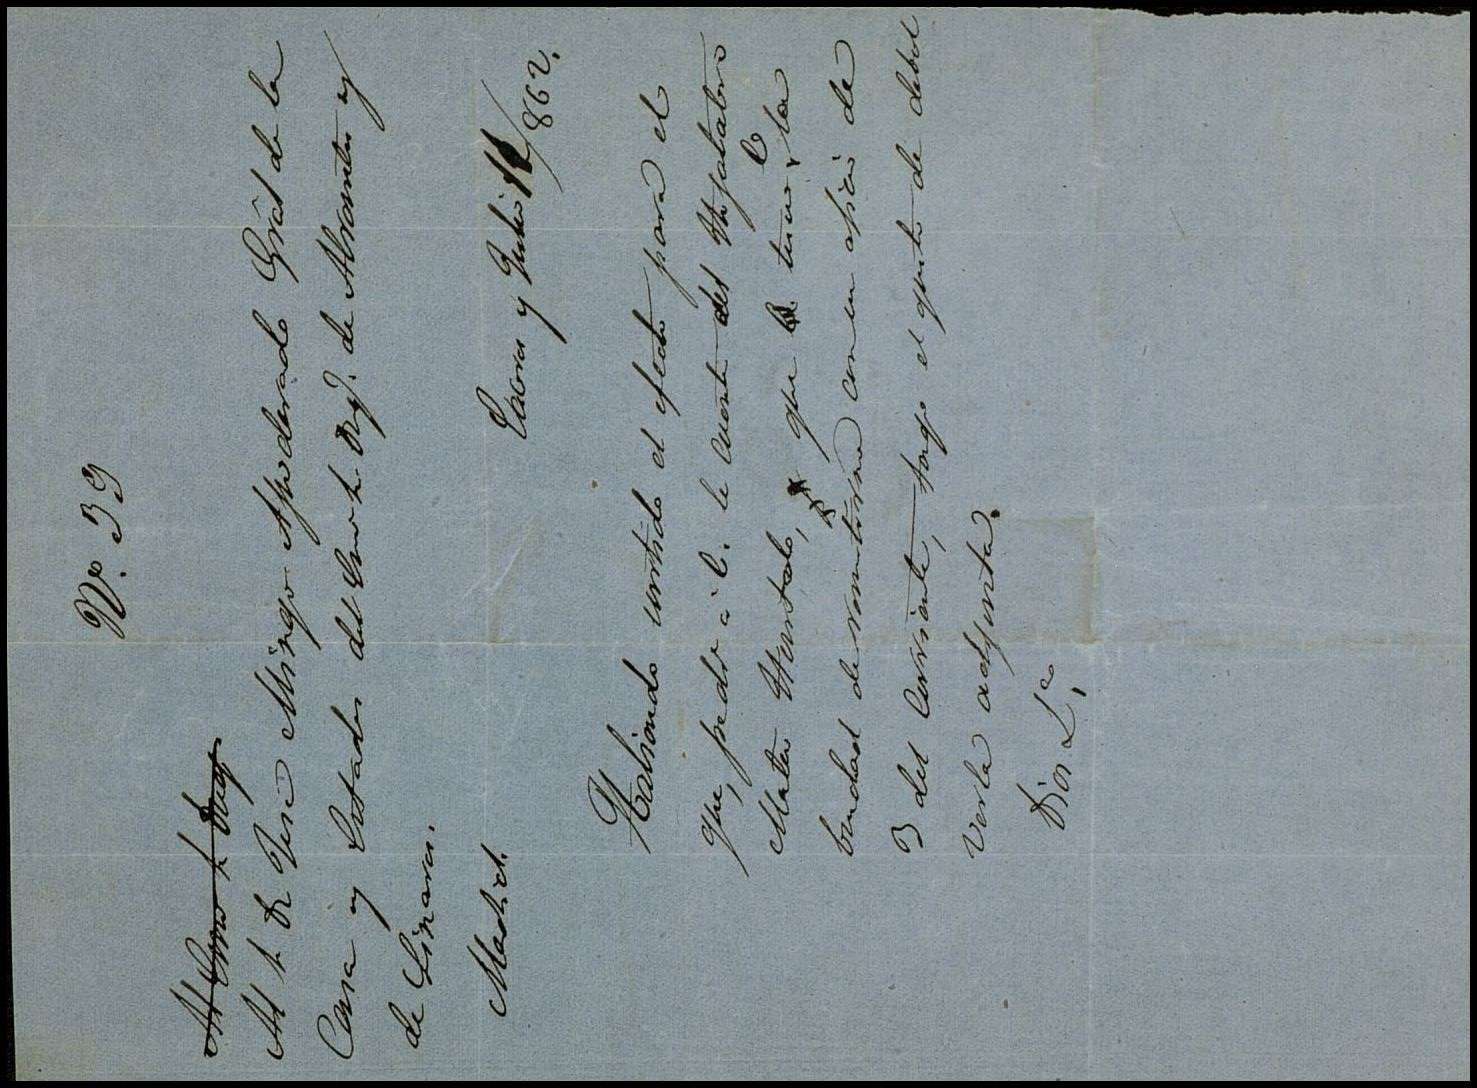 Nº. 39
Al Sr Dn José Mingo Apoderado Gral de la
Casa y Estados del Exmo Sr. Duq. de Abrantes y
de Linares.
Madrid.
Lacra y Julio 12/862.
Habiendo surtido el efecto para el
que, pedí á V. le cuenta del Hospitalero
Mateo Hurtado, que V. tuvo la
bondad de remitirme con su oficio de
3 del Corriente, tengo el gusto de debol
verla adjunta.
Dios &ª,